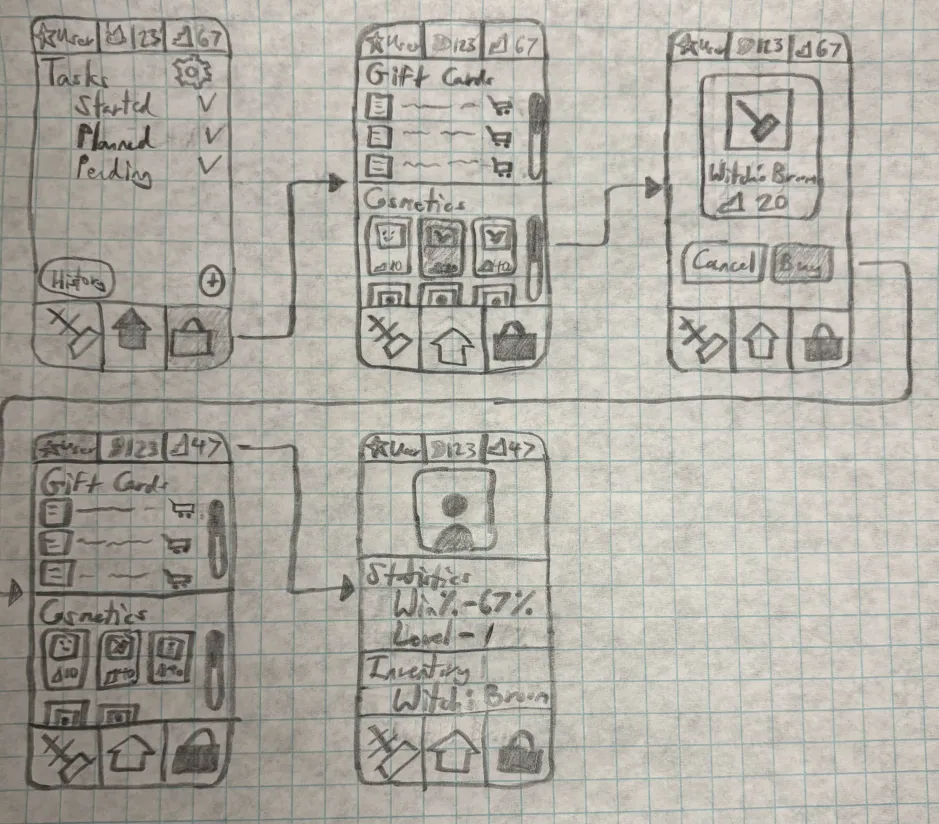 User 123 67
Tasks
Started
Planned
Pending
History
User 123 67
Gift Cards
Cosmetics
10 20 40
User 123 67
Witch's Broom
20
Cancel Buy
User 123 47
Gift Cards
Cosmetics
10 40
User 123 47
Statistics
Win% - 67%
Level - 1
Inventory
Witch's Broom